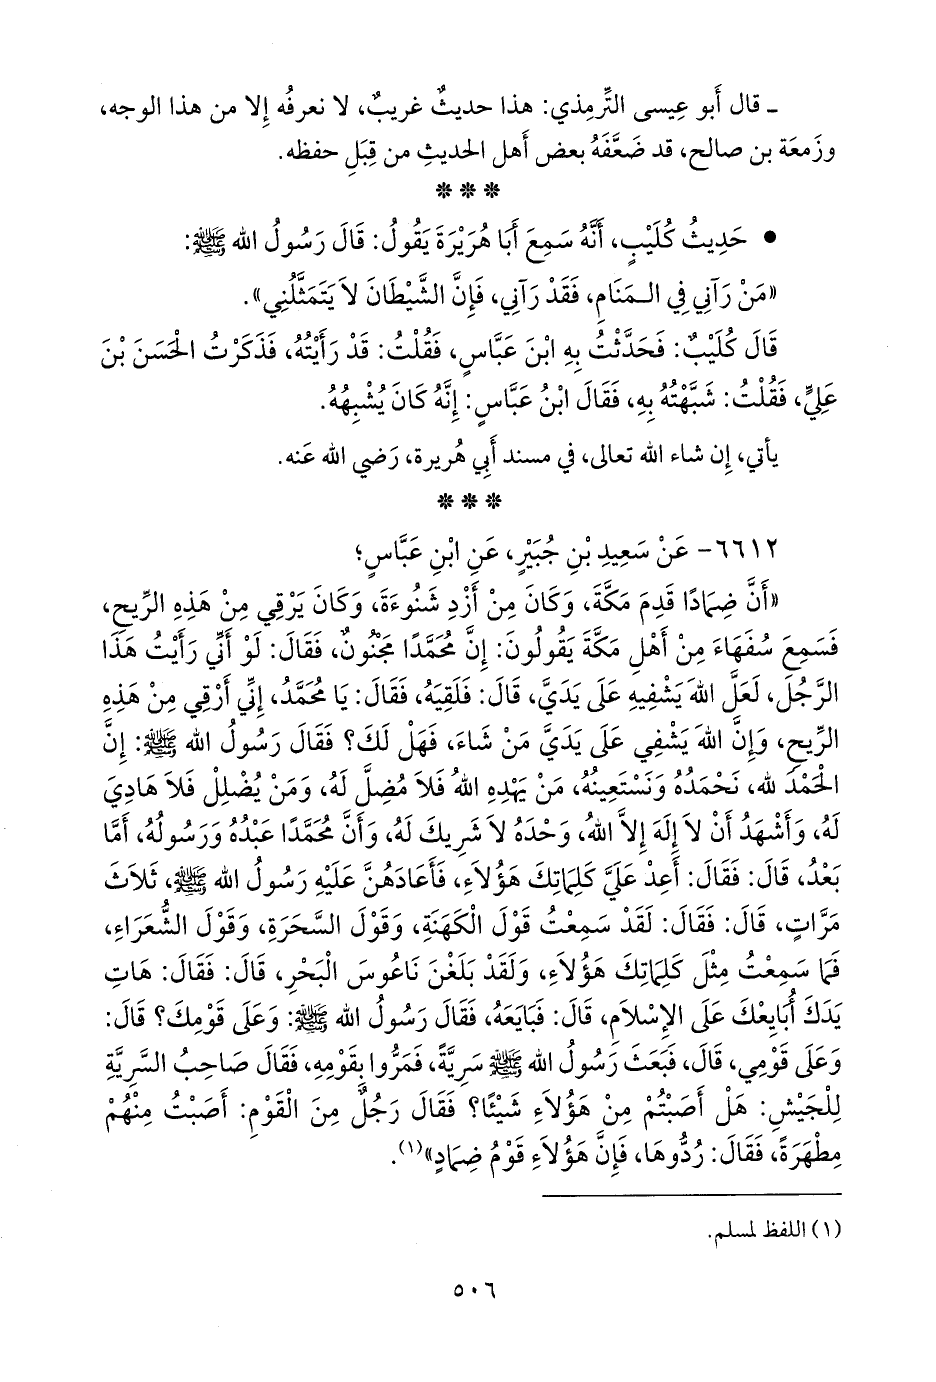 ـ قال أَبو عيسى التِّرمِذي: هذا حديثٌ غريبٌ، لا نعرفُه إِلا من هذا الوجه،
وزَمعَة بن صالح، قد ضَعَّفَهُ بعض أَهل الحديثِ من قِبَلِ حفظه.
* * *
• حَدِيثُ كُلَيْبٍ، أَنَّهُ سَمِعَ أَبَا هُرَيْرَةَ يَقُولُ: قَالَ رَسُولُ الله ﷺ:
«مَنْ رَآنِي فِي الـمَنَامِ، فَقَدْ رَآنِي، فَإِنَّ الشَّيْطَانَ لاَ يَتَمَثَّلُنِي».
قَالَ كُلَيْبٌ: فَحَدَّثْتُ بِهِ ابْنَ عَبَّاسٍ، فَقُلْتُ: قَدْ رَأَيْتُهُ، فَذَكَرْتُ الْحَسَنَ بْنَ
عَلِيٍّ، فَقُلْتُ: شَبَّهْتُهُ بِهِ، فَقَالَ ابْنُ عَبَّاسٍ: إِنَّهُ كَانَ يُشْبِهُهُ.
يأتي، إِن شاء الله تعالى، في مسند أَبي هُريرة، رَضي الله عَنه.
* * *
٦٦١٢- عَنْ سَعِيدِ بْنِ جُبَيْرٍ، عَنِ ابْنِ عَبَّاسٍ؛
«أَنَّ ضِمَادًا قَدِمَ مَكَّةَ، وَكَانَ مِنْ أَزْدِ شَنُوءَةَ، وَكَانَ يَرْقِي مِنْ هَذِهِ الرِّيحِ،
فَسَمِعَ سُفَهَاءَ مِنْ أَهْلِ مَكَّةَ يَقُولُونَ: إِنَّ مُحَمَّدًا مَجْنُونٌ، فَقَالَ: لَوْ أَنِّي رَأَيْتُ هَذَا
الرَّجُلَ، لَعَلَّ اللهَ يَشْفِيهِ عَلَى يَدَيَّ، قَالَ: فَلَقِيَهُ، فَقَالَ: يَا مُحَمَّدُ، إِنِّي أَرْقِي مِنْ هَذِهِ
الرِّيحِ، وَإِنَّ اللهَ يَشْفِي عَلَى يَدَيَّ مَنْ شَاءَ، فَهَلْ لَكَ؟ فَقَالَ رَسُولُ الله ﷺ: إِنَّ
الْحَمْدَ لله، نَحْمَدُهُ وَنَسْتَعِينُهُ، مَنْ يَهْدِهِ اللهُ فَلاَ مُضِلَّ لَهُ، وَمَنْ يُضْلِلْ فَلاَ هَادِيَ
لَهُ، وَأَشْهَدُ أَنْ لاَ إِلَهَ إِلاَّ اللهُ، وَحْدَهُ لاَ شَرِيكَ لَهُ، وَأَنَّ مُحَمَّدًا عَبْدُهُ وَرَسُولُهُ، أَمَّا
بَعْدُ، قَالَ: فَقَالَ: أَعِدْ عَلَيَّ كَلِمَاتِكَ هَؤُلاَءِ، فَأَعَادَهُنَّ عَلَيْهِ رَسُولُ الله ﷺ، ثَلاَثَ
مَرَّاتٍ، قَالَ: فَقَالَ: لَقَدْ سَمِعْتُ قَوْلَ الْكَهَنَةِ، وَقَوْلَ السَّحَرَةِ، وَقَوْلَ الشُّعَرَاءِ،
فَمَا سَمِعْتُ مِثْلَ كَلِمَاتِكَ هَؤُلاَءِ، وَلَقَدْ بَلَغْنَ نَاعُوسَ الْبَحْرِ، قَالَ: فَقَالَ: هَاتِ
يَدَكَ أُبَايِعْكَ عَلَى الإِسْلاَمِ، قَالَ: فَبَايَعَهُ، فَقَالَ رَسُولُ الله ﷺ: وَعَلَى قَوْمِكَ؟ قَالَ:
وَعَلَى قَوْمِي، قَالَ، فَبَعَثَ رَسُولُ الله ﷺ سَرِيَّةً، فَمَرُّوا بِقَوْمِهِ، فَقَالَ صَاحِبُ السَّرِيَّةِ
لِلْجَيْشِ: هَلْ أَصَبْتُمْ مِنْ هَؤُلاَءِ شَيْئًا؟ فَقَالَ رَجُلٌ مِنَ الْقَوْمِ: أَصَبْتُ مِنْهُمْ
مِطْهَرَةً، فَقَالَ: رُدُّوهَا، فَإِنَّ هَؤُلاَءِ قَوْمُ ضِمَادٍ»(١).
(١) اللفظ لمسلم.
٥٠٦